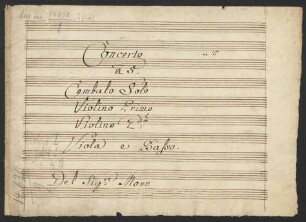 Concerto
a 5.
Cembalo Solo
Violino Primo
Violino 2do
Viola e Basso.
Del Sigr. Mann